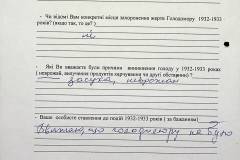 - Чи відомі Вам конкретні місця захоронення жертв Голодомору 1932-1933
років? (якщо так, то де?)
ні
- Які Ви вважаєте були причини виникнення голоду у 1932-1933 роках
( неврожай, вилучення продуктів харчування чи другі обставини) ?
засуха, неврожай
- Ваше особисте ставлення до подій 1932-1933 років ( за бажанням)
Вважаю, що голодомору не було